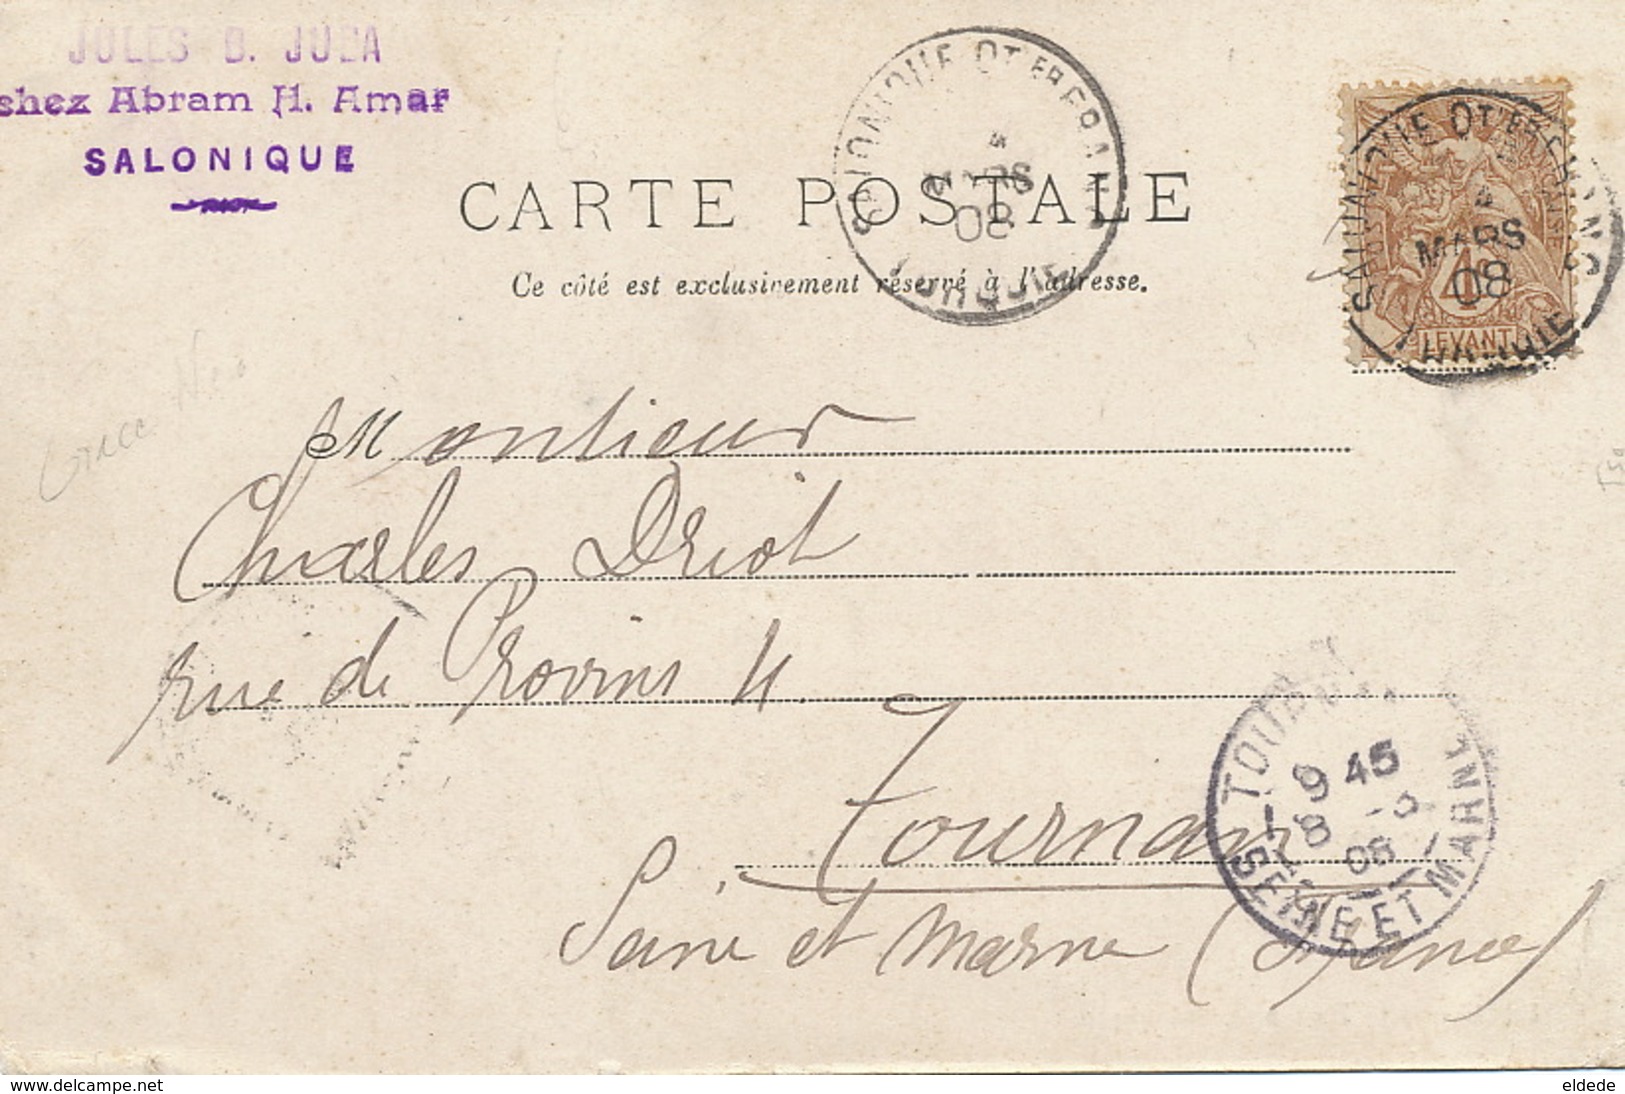 JULES B. JUDA
chez Abram H. Amar
SALONIQUE
SALONIQUE
MARS
08
TURQUIE
SALONIQUE
MARS
08
TURQUIE
4
LEVANT
CARTE POSTALE
Ce côté est exclusivement réservé à l'adresse.
Monsieur
Charles Driot
rue de Provins
Tournan
Seine et Marne (France)
TOURNAN
9 45
8 -3
08
SEINE ET MARNE
www.delcampe.net
eldede